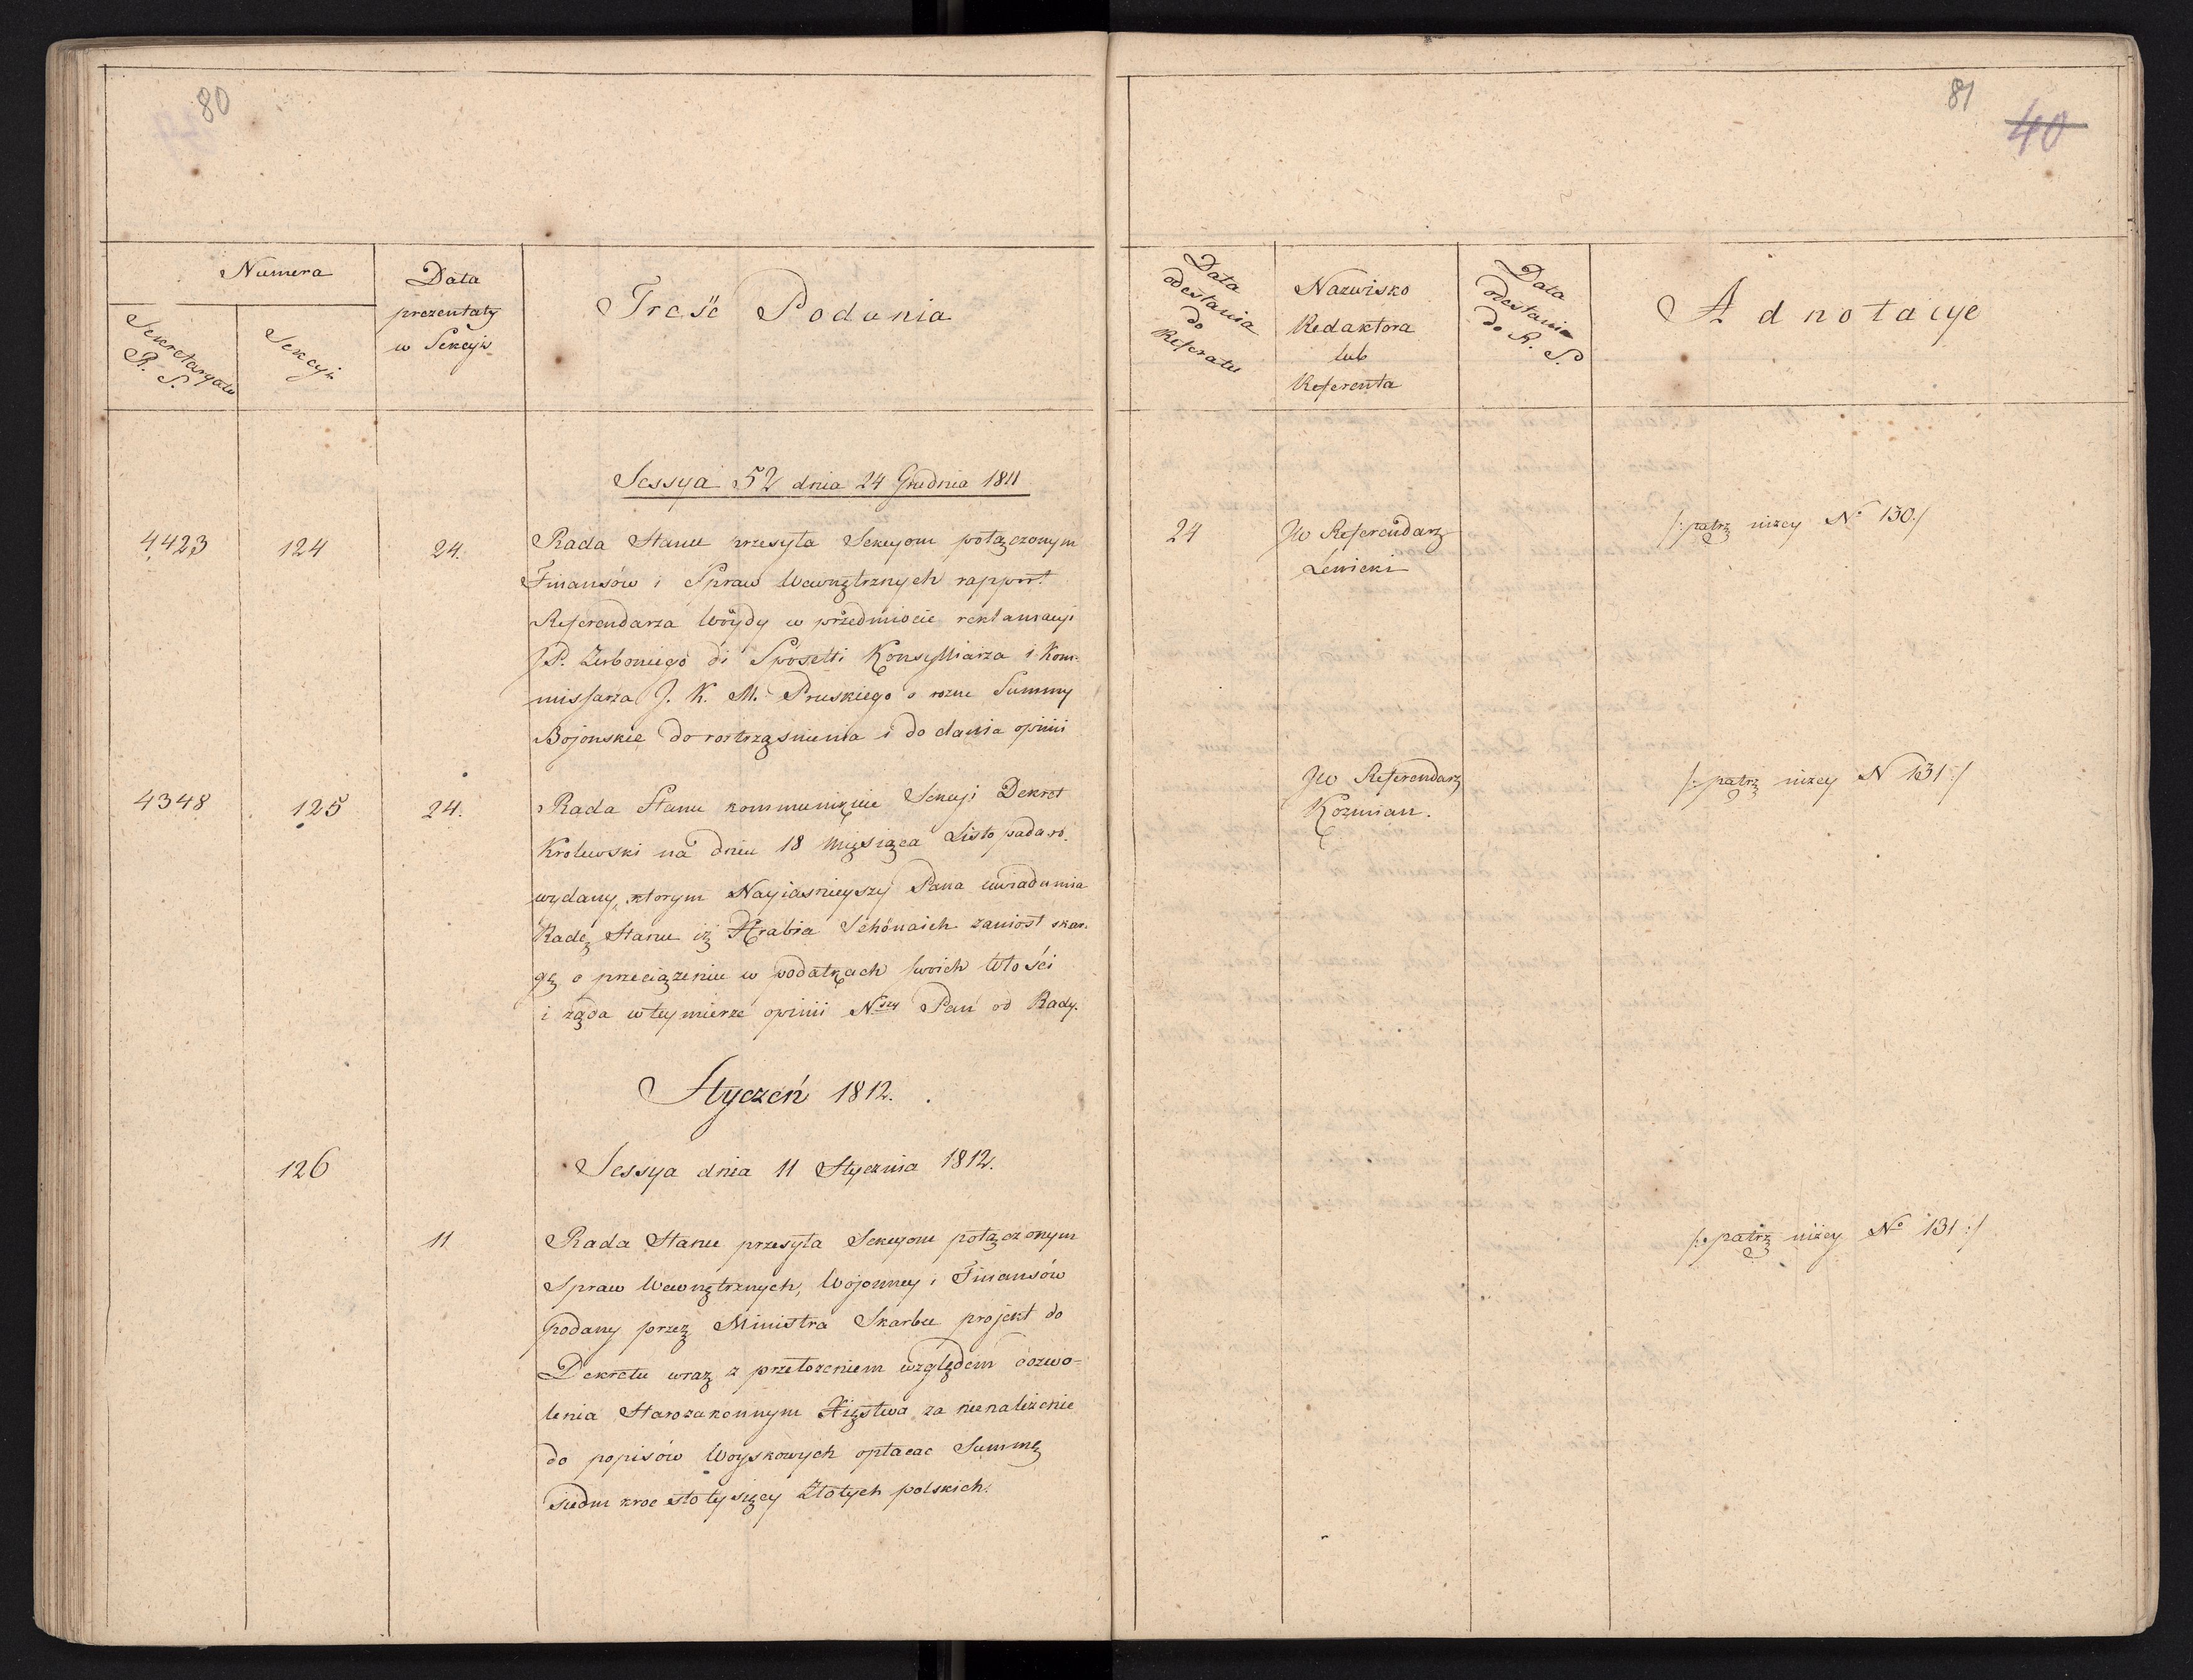 80
Numera
Sekretaryatu
R. S.
Sekcyi
Data
prezentaty
w Sekcyi
Treść Podania
Sessya 52 dnia 24 Grudnia 1811
4423
124
24.
Rada Stanu przesyła Sekcyom połączonym
Finansów i Spraw Wewnętrznych rapport
Referendarza Wóydy w przedmiocie reklamacyi
JP. Zerboniego di Sposetti Konsylliarza i Kom-
missarza J. K. M. Pruskiego o rozne Summy
Bojonskie do rostrząsnienia i do dania opinii
4348
125
24.
Rada Stanu kommunikuie Sekcyi Dekret
Krolewski na dniu 18 Miesiąca Listopada ro.
wydany, ktorym Nayiasnieyszy Pana uwiadomia
Radę Stanu iż Hrabia Schönaich zaniosł skar-
gę o przeciążeniu w podatkach swoich Włości
i żąda w tey mierze opinii N.szy Pan od Rady.
Styczeń 1812.
126
Sessya dnia 11 Stycznia 1812.
11
Rada Stanu przesyła Sekcyom połączonym
Spraw Wewnętrznych, Wojenney i Finansów
podany przez Ministra Skarbu projekt do
Dekretu wraz z przełożeniem względem dozwo-
lenia Starozakonnym Xięstwa za nienależenie
do popisów Woyskowych opłacac Summę
siedm kroc sto tysięcy Złotych polskich.
81
40
Data
odesłania
do
Referatu
Nazwisko
Redaktora
lub
Referenta
Data
odesłania
do R. S.
Adnotacye
24
JW Referendarz
Lewicki
/: patrz niżey No 130 :/
JW Referendarz
Kozmian.
/: patrz niżey N 131 :/
/: patrz niżey No 131 :/